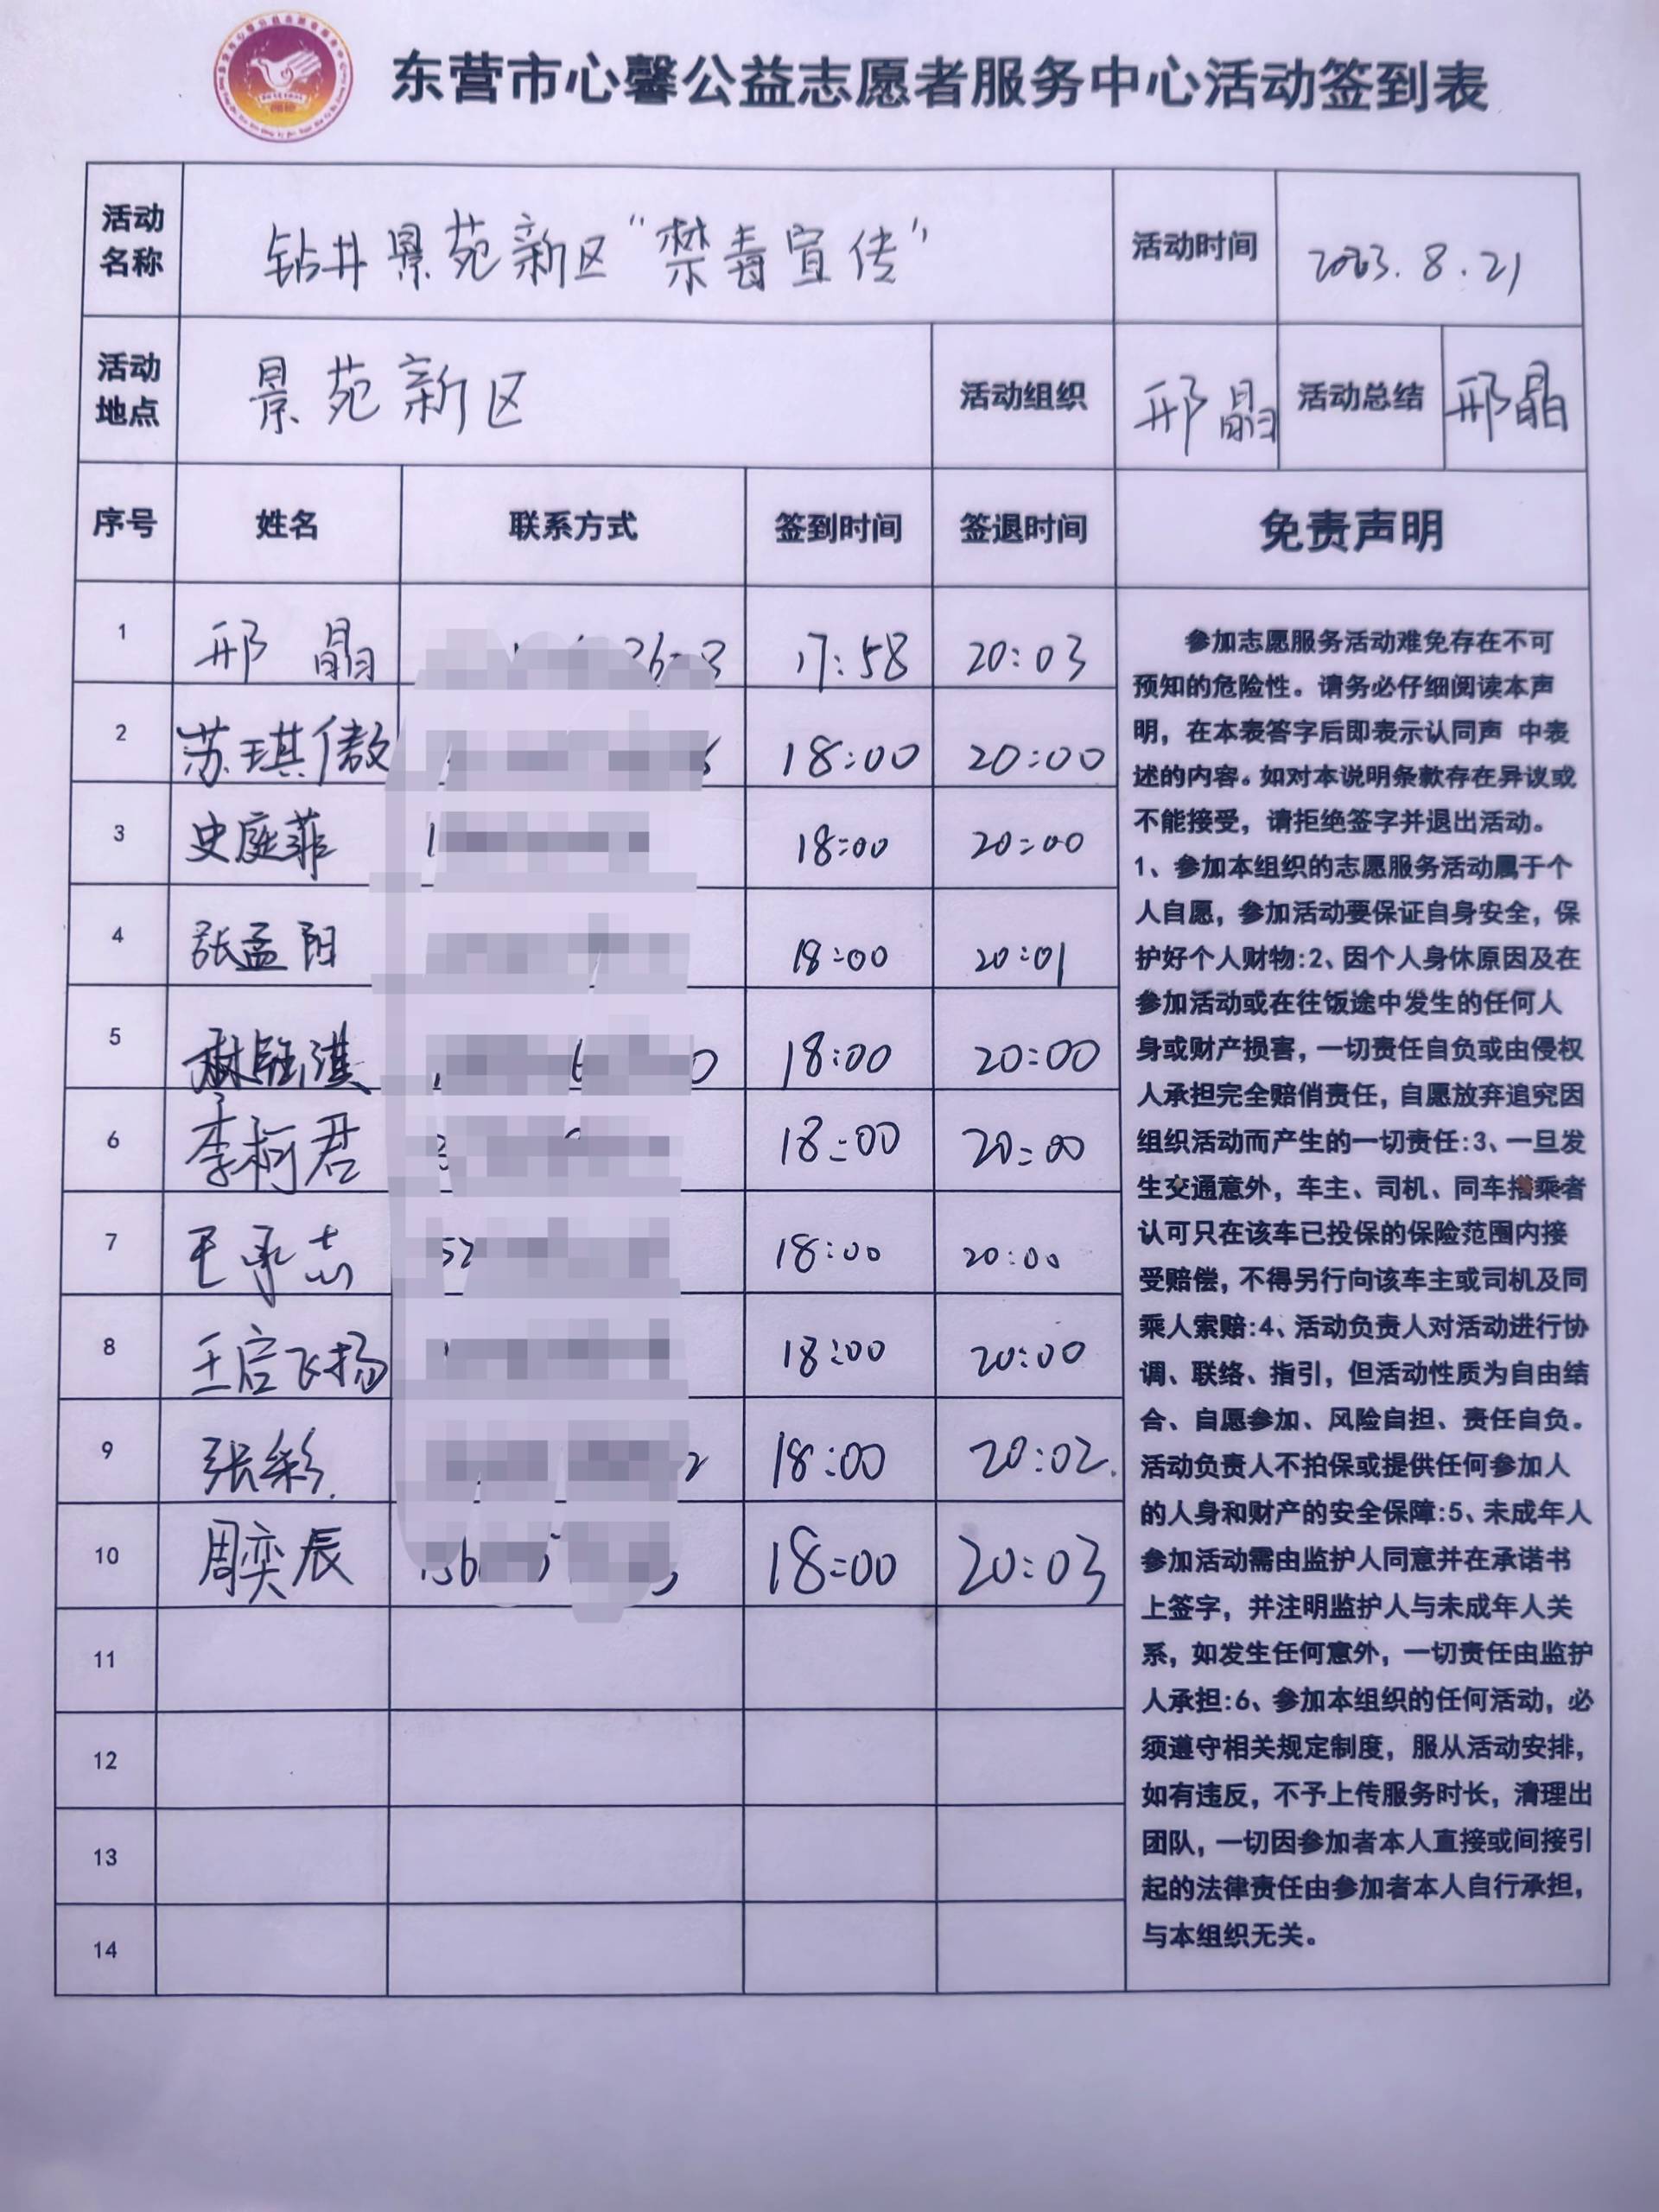 东营市心馨公益志愿者服务中心活动签到表
活动名称 钻井景苑新区“禁毒宣传” 活动时间 2023.8.21
活动地点 景苑新区 活动组织 邢晶 活动总结 邢晶
序号 姓名 联系方式 签到时间 签退时间 免责声明
1 邢晶 17:58 20:03
2 苏琪傲 18:00 20:00
3 史庭菲 18:00 20:00
4 张孟阳 18:00 20:01
5 18:00 20:00
6 李柯君 18:00 20:00
7 王承志 18:00 20:00
8 王启飞扬 18:00 20:00
9 张彩 18:00 20:02.
10 周奕辰 18:00 20:03
11
12
13
14
参加志愿服务活动难免存在不可
预知的危险性。请务必仔细阅读本声
明，在本表答字后即表示认同声 中表
述的内容。如对本说明条款存在异议或
不能接受，请拒绝签字并退出活动。
1、参加本组织的志愿服务活动属于个
人自愿，参加活动要保证自身安全，保
护好个人财物:2、因个人身休原因及在
参加活动或在往饭途中发生的任何人
身或财产损害，一切责任自负或由侵权
人承担完全赔俏责任，自愿放弃追究因
组织活动而产生的一切责任:3、一旦发
生交通意外，车主、司机、同车搭乘者
认可只在该车已投保的保险范围内接
受赔偿，不得另行向该车主或司机及同
乘人索赔:4、活动负责人对活动进行协
调、联络、指引，但活动性质为自由结
合、自愿参加、风险自担、责任自负。
活动负责人不拍保或提供任何参加人
的人身和财产的安全保障:5、未成年人
参加活动需由监护人同意并在承诺书
上签字，并注明监护人与未成年人关
系，如发生任何意外，一切责任由监护
人承担:6、参加本组织的任何活动，必
须遵守相关规定制度，服从活动安排，
如有违反，不予上传服务时长，清理出
团队，一切因参加者本人直接或间接引
起的法律责任由参加者本人自行承担，
与本组织无关。